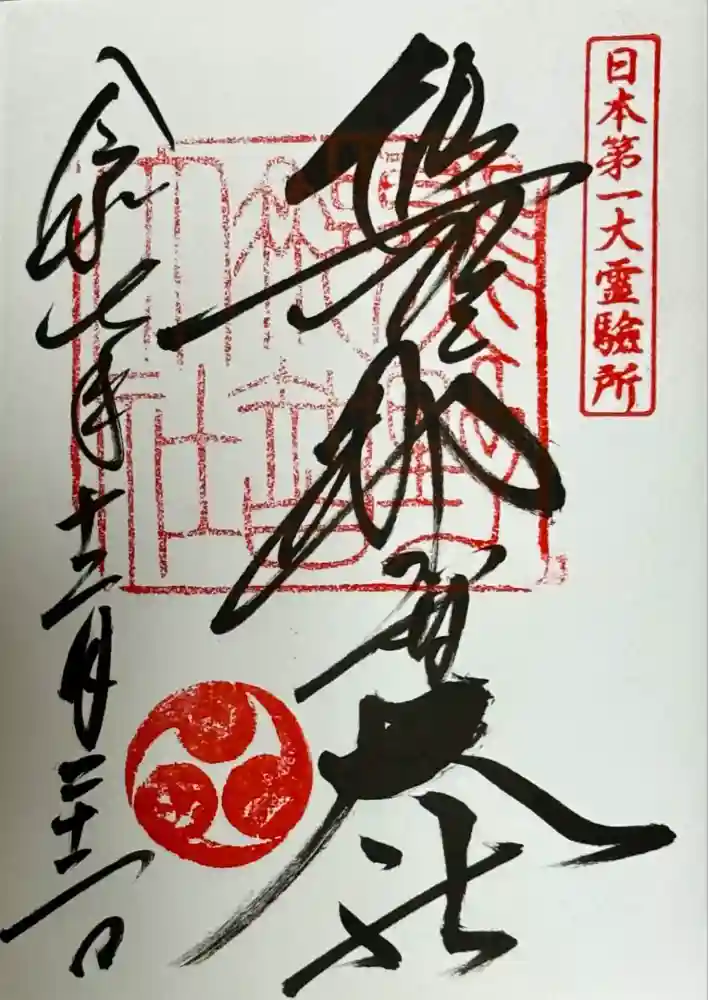 日本第一大霊驗所
熊野那智大社
熊野
那智
大社
令和七年十二月二十二日